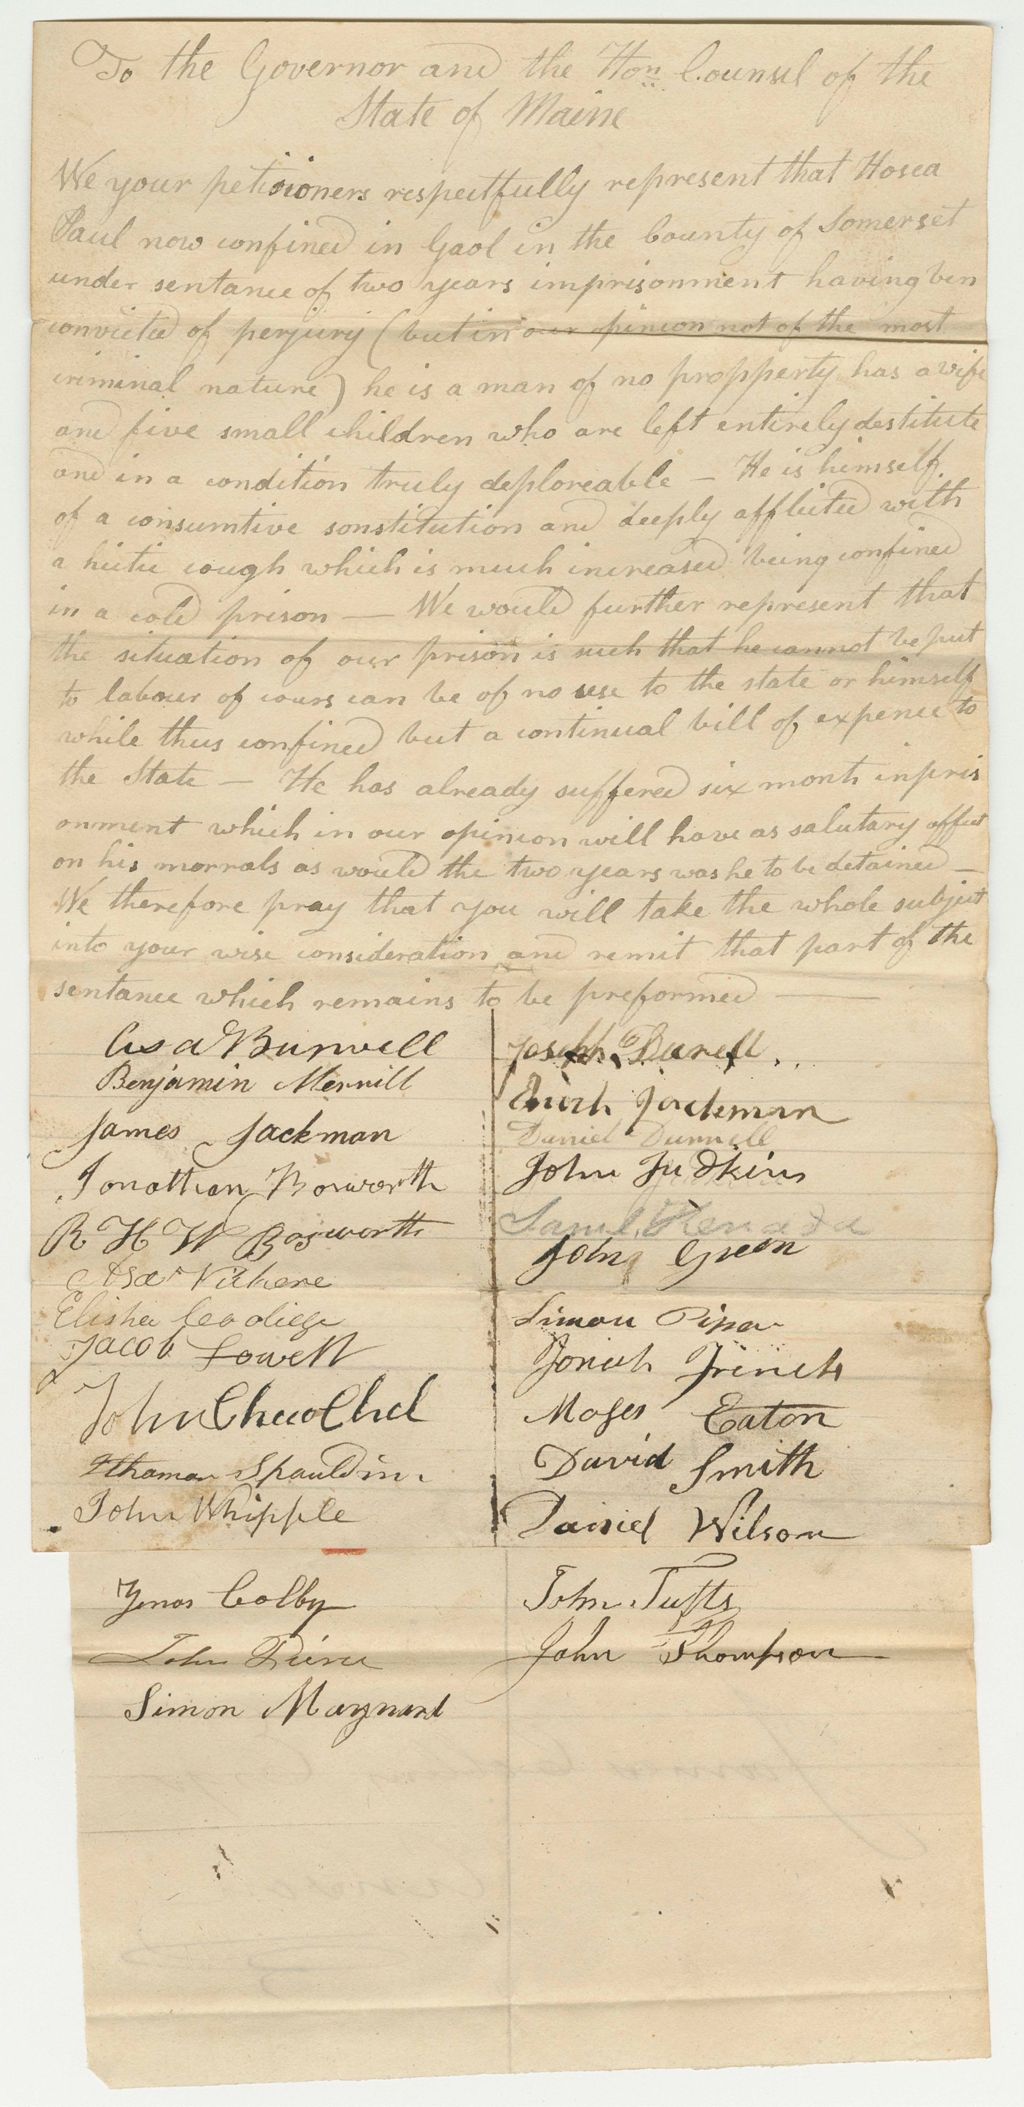 To the Governor and the Hon Counsel of the
State of Maine
We your petisioners respectfully represent that Hosea
Paul now confined in Gaol in the County of Somerset
under sentance of two years imprisonment having ben
convicted of perjury (but in our opinion not of the most
criminal nature) he is a man of no propperty has a wife
and five small children who are left entirely destitute
and in a condition truly deploreable — He is himself
of a consumtive sonstitution and deeply afflicted with
a hictic cough which is much increased being confined
in a cold prison — We would further represent that
the situation of our prison is such that he cannot be put
to labour of cours can be of no use to the state or himself
while thus confined but a continual bill of expence to
the State — He has already suffered six month inpris
onment which in our opinion will have as salutary affect
on his morrals as would the two years was he to be detained —
We therefore pray that you will take the whole subject
into your wise consideration and remit that part of the
sentance which remains to be preformed —
Asa Bunwell
Benjamin Merrill
James Jackman
Jonathan Bosworth
R H W Bosworth
Asa Vickere
Elisha Coolidge
Jacob Lowell
John
Spauldin
John Whipple
Colby
John Pierce
Simon Maynard
Joseph Durell
Enoch Jackman
Daniel Dunnell
John Judkins
Saml
John Green
Simon Piper
Jonah French
Moses Eaton
David Smith
Daniel Wilson
John Tufts
John Thompson